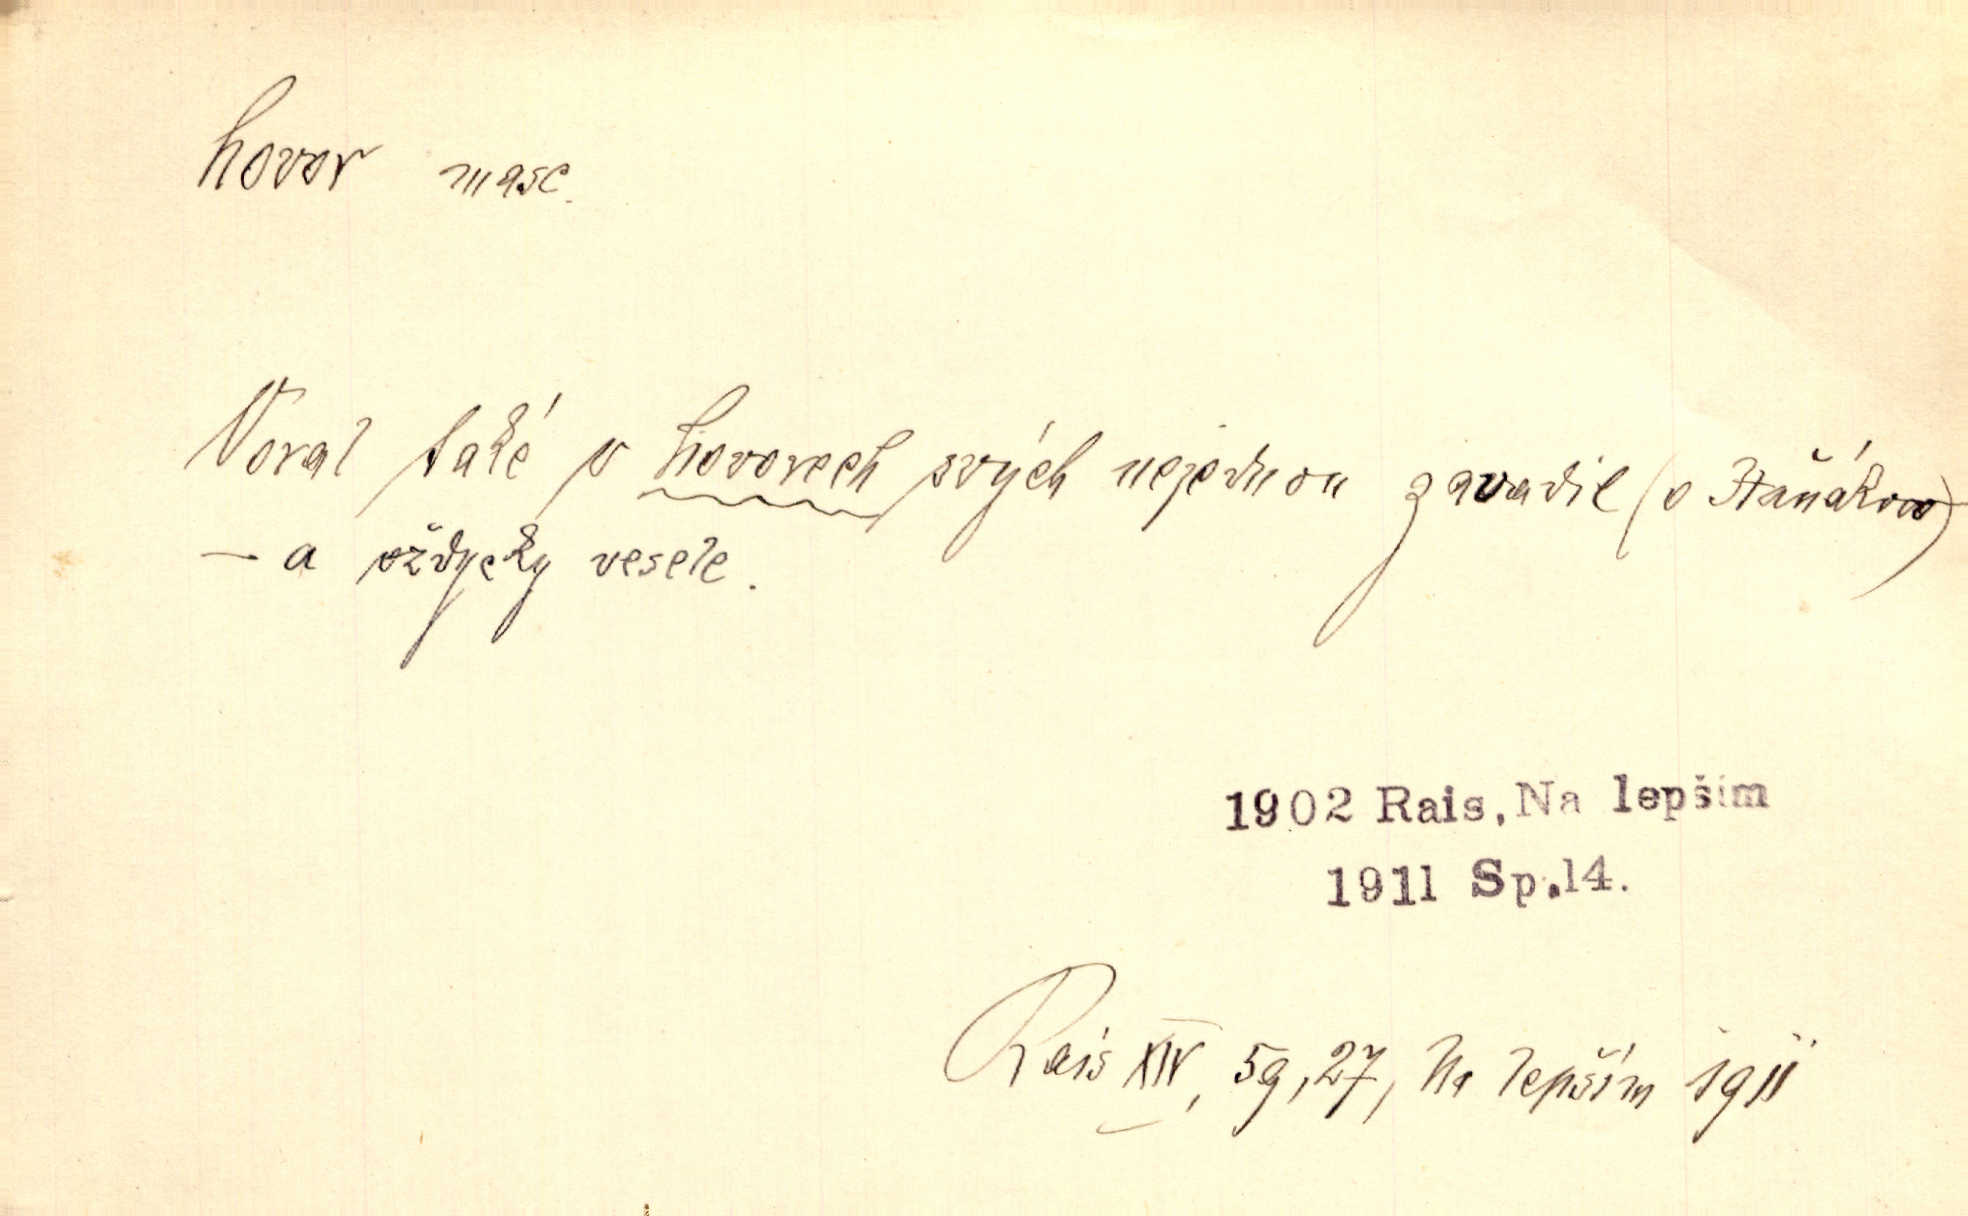 hovor masc.
Voral také v hovorech svých nejednou zavadil (o Staňákovo)
– a vždycky vesele.
1902 Rais, Na lepším
1911 Sp.14.
Rais XIV, 59,27, Na lepším 1911